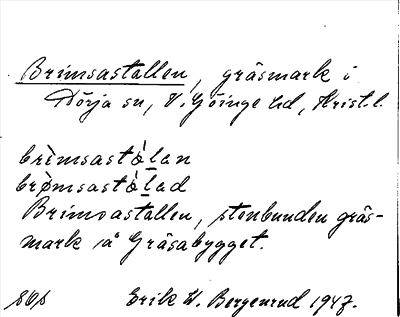 Brimsastallen, gräsmark i
Dörja sn, V. Göinge hd, Krist. l.
brìmsastȯ́lan
brømsastȯ́lad
Brimsastallen, stenbunden gräs-
mark å Gräsabygget.
Erik W. Bergenrud 1947.